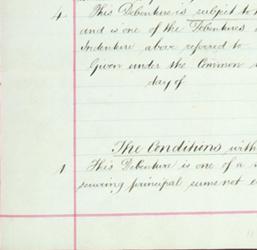 4. This Debenture is subject to
and is one of the Debentures
Indenture above referred to
Given under the Common
day of
The Conditions with
1 This Debenture is one of a
securing principal sums not